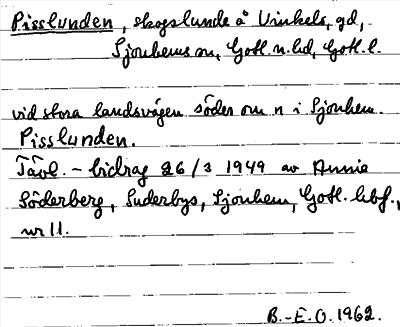 Pisslunden, skogslunde å Vinkels, gd,
Sjonhems sn, Gotl. n. hd, Gotl. l.
vid stora landsvägen söder om n i Sjonhem.
Pisslunden.
Tävl.-bidrag 26/3 1949 av Annie
Söderberg, Suderbys, Sjonhem, Gotl. hbf.,
nr 11.
B.-E.O. 1962.